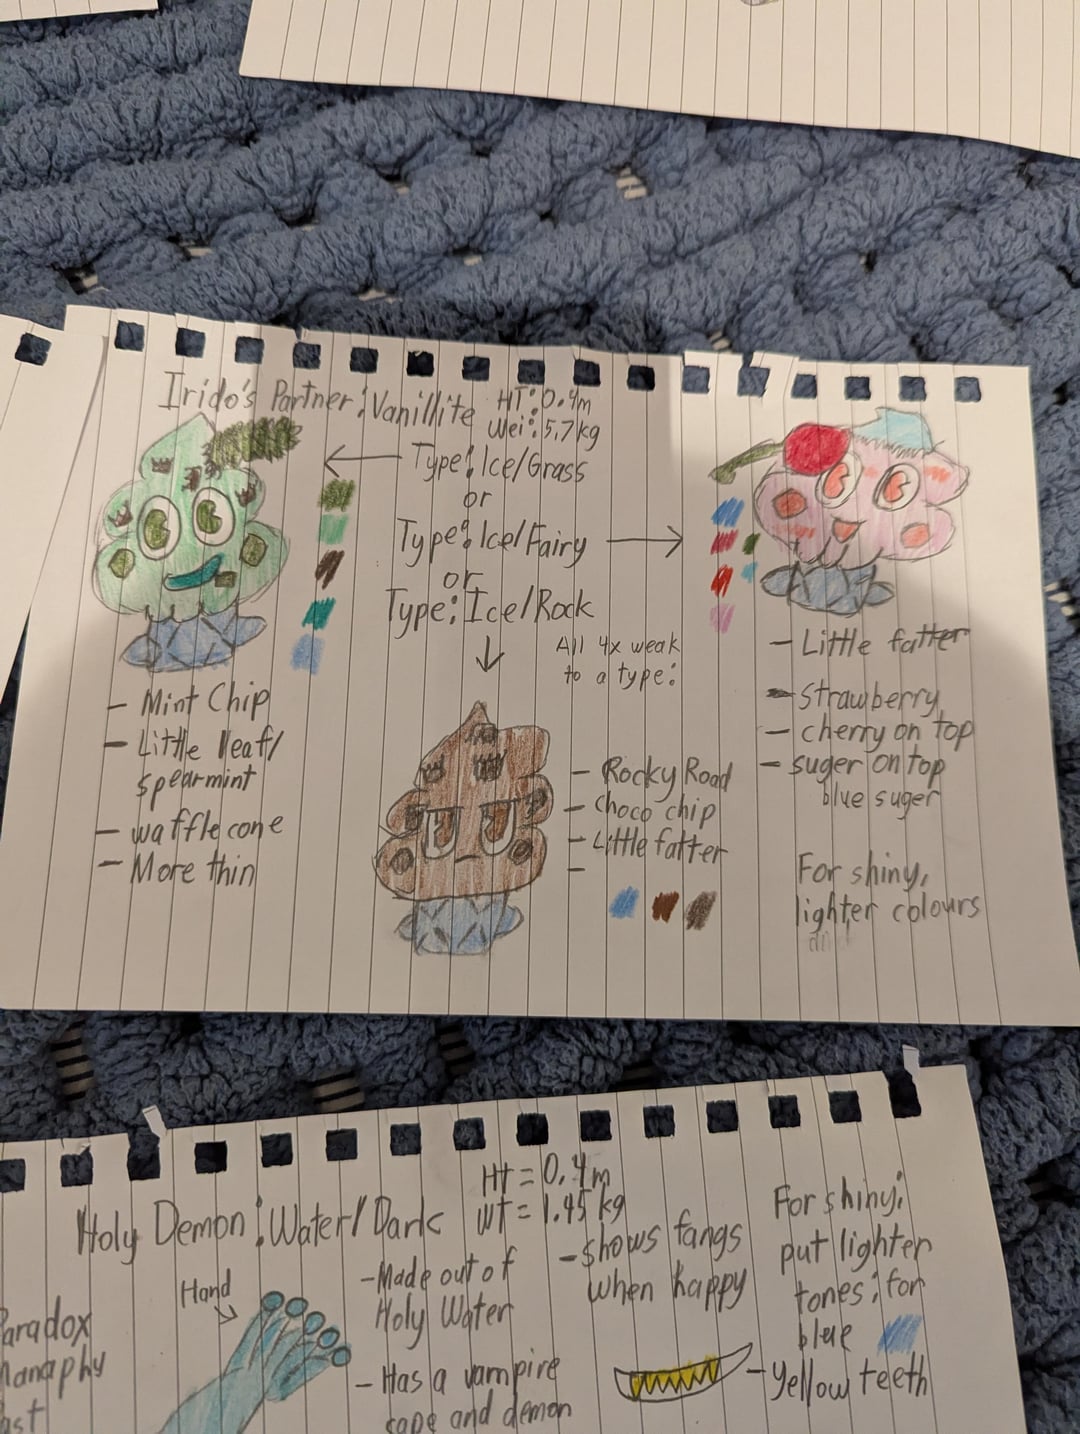 Irido's Partner: Vanillite
HT: 0.4m
Wei: 5.7kg
Type: Ice/Grass
or
Type: Ice/Fairy
or
Type: Ice/Rock
All 4x weak
to a type:
- Mint Chip
- Little leaf/
spearmint
- waffle cone
- More thin
- Rocky Road
- choco chip
- Little fatter
-
- Little fatter
- Strawberry
- cherry on top
- suger on top
blue suger
For shiny,
lighter colours
Holy Demon: Water/Dark
Ht = 0.4m
wt = 1.45kg
Hand
-Made out of
Holy Water
- Has a vampire
cape and demon
-shows fangs
when happy
For shiny;
put lighter
tones; for
blue
-Yellow teeth